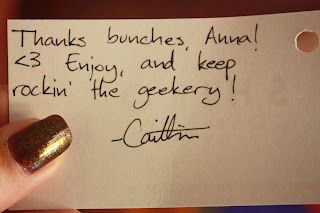 Thanks bunches, Anna!
<3 Enjoy, and keep
rockin' the geekery!
-Caitlin